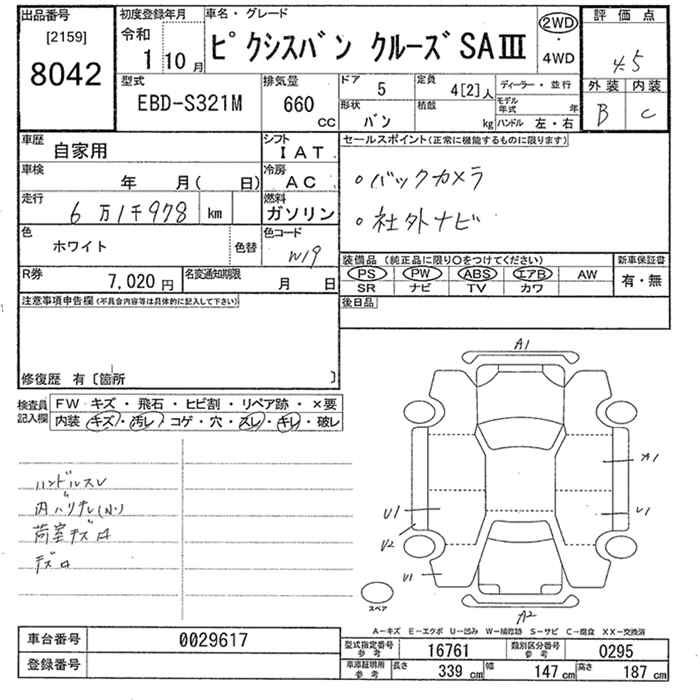 出品番号
[2159]
8042
初度登録年月
令和
1 10 月
車名・グレード
ピクシスバン クルーズ SAⅢ
2WD
・
4WD
評価点
4.5
外装 内装
B C
型式
EBD-S321M
排気量
660
CC
ドア 5
形状 バン
定員 4[2]人
積載 kg
ディーラー・並行
モデル年式 年
ハンドル 左・右
車歴 自家用
シフト IAT
車検 年 月( 日)
冷房 AC
走行 6万1千978 km
燃料 ガソリン
色 ホワイト
色替
色コード W19
R券 7,020円
名変通知期限 月 日
セールスポイント(正常に機能するものに限ります)
○バックカメラ
○社外ナビ
装備品(純正品に限り○をつけてください)
新車保証書
PS PW ABS エアB AW
有・無
SR ナビ TV カワ
後日品
注意事項申告欄(不具合内容等は具体的に記入して下さい)
修復歴 有〔箇所 〕
検査員記入欄
FW キズ・飛石・ヒビ割・リペア跡・×要
内装 キズ・汚レ・コゲ・穴・スレ・キレ・破レ
ハンドルスレ
内ハリキレ(小)
荷室キズ
A1
A1
U1
U1
U2
U1
A2
スペア
A-キズ E-エクボ U-凹み W-補修跡 S-サビ C-腐食 XX-交換済
車台番号 0029617
登録番号
型式指定番号参考 16761
類別区分番号参考 0295
車庫証明用参考 長さ 339 cm 幅 147 cm 高さ 187 cm